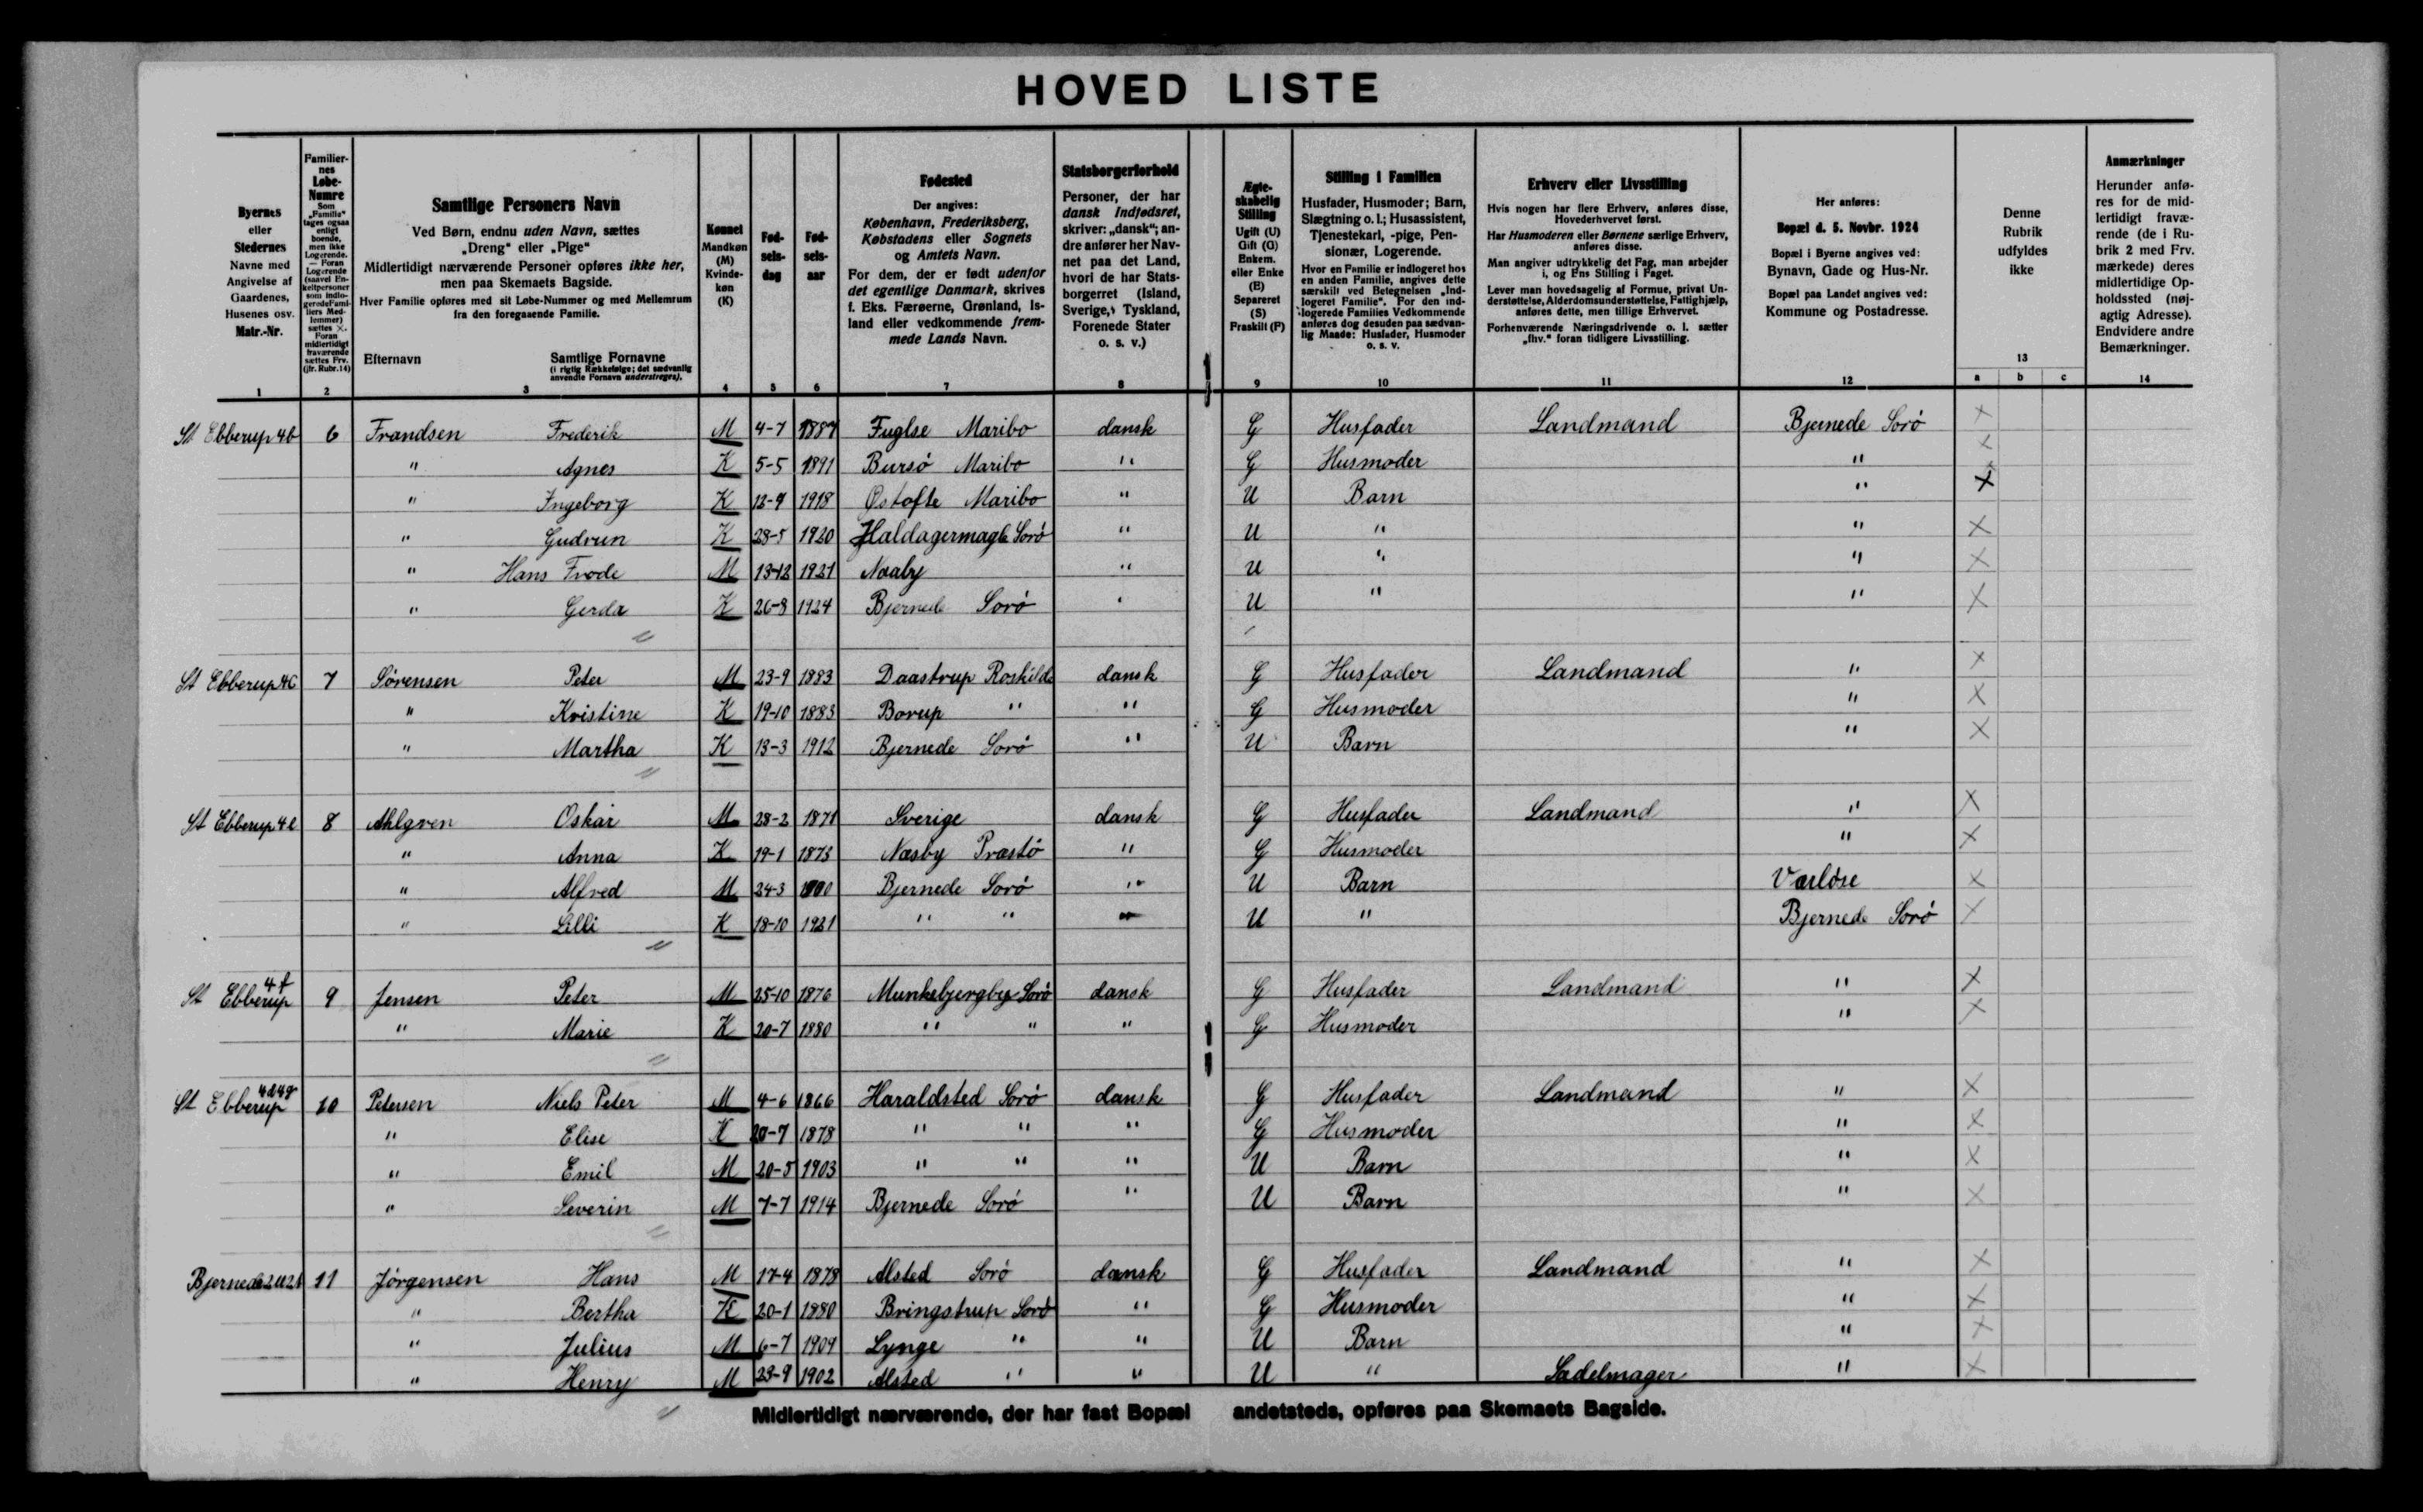 HOVED LISTE
Byernes
eller
Stedernes
Navne med
Angivelse af
Gaardenes,
Husenes osv.
Matr.-Nr.
1
Familier-
nes
Løbe-
Numre
Som
„Familie“
tages ogsaa
enligt
boende,
men ikke
Logerende.
— Foran
Logerende
(saavel En-
keltpersoner
som indlo-
gerede Fami-
liers Med-
lemmer)
sættes ×.
Foran
midlertidigt
fraværende
sættes Frv.
(jfr. Rubr. 14)
2
Samtlige Personers Navn
Ved Børn, endnu uden Navn, sættes
„Dreng“ eller „Pige“
Midlertidigt nærværende Personer opføres ikke her,
men paa Skemaets Bagside.
Hver Familie opføres med sit Løbe-Nummer og med Mellemrum
fra den foregaaende Familie.
Efternavn
Samtlige Fornavne
(i rigtig Rækkefølge; det sædvanlig
anvendte Fornavn understreges).
3
Kønnet
Mandkøn
(M)
Kvinde-
køn
(K)
4
Fød-
sels-
dag
5
Fød-
sels-
aar
6
Fødested
Der angives:
København, Frederiksberg,
Købstadens eller Sognets
og Amtets Navn.
For dem, der er født udenfor
det egentlige Danmark, skrives
f. Eks. Færøerne, Grønland, Is-
land eller vedkommende frem-
mede Lands Navn.
7
Statsborgerforhold
Personer, der har
dansk Indfødsret,
skriver: „dansk“; an-
dre anfører her Nav-
net paa det Land,
hvori de har Stats-
borgerret (Island,
Sverige, Tyskland,
Forenede Stater
o. s. v.)
8
Ægte-
skabelig
Stilling
Ugift (U)
Gift (G)
Enkem.
eller Enke
(E)
Separeret
(S)
Fraskilt (F)
9
Stilling i Familien
Husfader, Husmoder; Barn,
Slægtning o. l.; Husassistent,
Tjenestekarl, -pige, Pen-
sionær, Logerende.
Hvor en Familie er indlogeret hos
en anden Familie, angives dette
særskilt ved Betegnelsen „Ind-
logeret Familie“. For den ind-
logerede Families Vedkommende
anføres dog desuden paa sædvan-
lig Maade: Husfader, Husmoder
o. s. v.
10
Erhverv eller Livsstilling
Hvis nogen har flere Erhverv, anføres disse,
Hovederhvervet først.
Har Husmoderen eller Børnene særlige Erhverv,
anføres disse.
Man angiver udtrykkelig det Fag, man arbejder
i, og Ens Stilling i Faget.
Lever man hovedsagelig af Formue, privat Un-
derstøttelse, Alderdomsunderstøttelse, Fattighjælp,
anføres dette, men tillige Erhvervet.
Forhenværende Næringsdrivende o. l. sætter
„fhv.“ foran tidligere Livsstilling.
11
Her anføres:
Bopæl d. 5. Novbr. 1924
Bopæl i Byerne angives ved:
Bynavn, Gade og Hus-Nr.
Bopæl paa Landet angives ved:
Kommune og Postadresse.
12
Denne
Rubrik
udfyldes
ikke
13
a b c
Anmærkninger
Herunder anfø-
res for de mid-
lertidigt fravæ-
rende (de i Ru-
brik 2 med Frv.
mærkede) deres
midlertidige Op-
holdssted (nøj-
agtig Adresse).
Endvidere andre
Bemærkninger.
14
St Ebberup 4b 6 Frandsen Frederik M 4-7 1887 Fuglse Maribo dansk G Husfader Landmand Bjernede Sorø ×
" Agnes K 5-5 1891 Bursø Maribo " G Husmoder " ×
" Ingeborg K 12-9 1918 Østofte Maribo " U Barn " ×
" Gudrun K 28-5 1920 Haldagermagle Sorø " U " " ×
" Hans Frode M 13-12 1921 Naaby " U " " ×
" Gerda K 26-8 1924 Bjernede Sorø " U " " ×
St Ebberup 4c 7 Sørensen Peter M 23-9 1883 Daastrup Roskilde dansk G Husfader Landmand " ×
" Kristine K 19-10 1883 Borup " " G Husmoder " ×
" Martha K 13-3 1912 Bjernede Sorø " U Barn " ×
St Ebberup 4e 8 Ahlgren Oskar M 28-2 1871 Sverige dansk G Husfader Landmand " ×
" Anna K 19-1 1873 Næsby Præstø " G Husmoder " ×
" Alfred M 24-3 1900 Bjernede Sorø " U Barn Værløse ×
" Lilli K 18-10 1921 " " " U " Bjernede Sorø ×
St Ebberup 4f 9 Jensen Peter M 25-10 1876 Munkebjergby Sorø dansk G Husfader Landmand " ×
" Marie K 20-7 1880 " " " G Husmoder " ×
St Ebberup 4d 4g 10 Petersen Niels Peter M 4-6 1866 Haraldsted Sorø dansk G Husfader Landmand " ×
" Elise K 20-7 1878 " " " G Husmoder " ×
" Emil M 20-5 1903 " " " U Barn " ×
" Severin M 7-7 1914 Bjernede Sorø " U Barn " ×
Bjernede 11 Jørgensen Hans M 17-4 1878 Alsted Sorø dansk G Husfader Landmand " ×
" Bertha K 20-1 1880 Bringstrup Sorø " G Husmoder " ×
" Julius M 6-7 1909 Lynge " " U Barn " ×
" Henry M 23-9 1902 Alsted " " U " Sadelmager " ×
Midlertidigt nærværende, der har fast Bopæl andetsteds, opføres paa Skemaets Bagside.